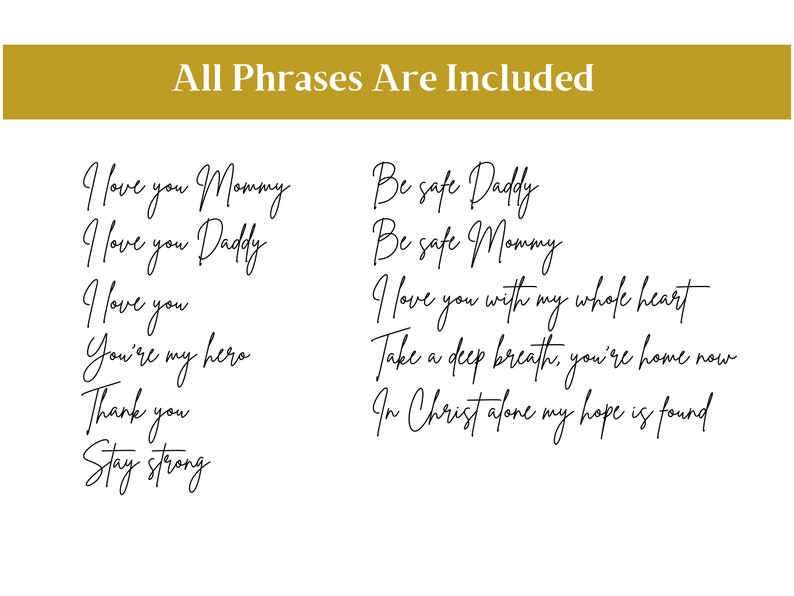 All Phrases Are Included
I love you Mommy
I love you Daddy
I love you
You're my hero
Thank you
Stay strong
Be safe Daddy
Be safe Mommy
I love you with my whole heart
Take a deep breath, you're home now
In Christ alone my hope is found